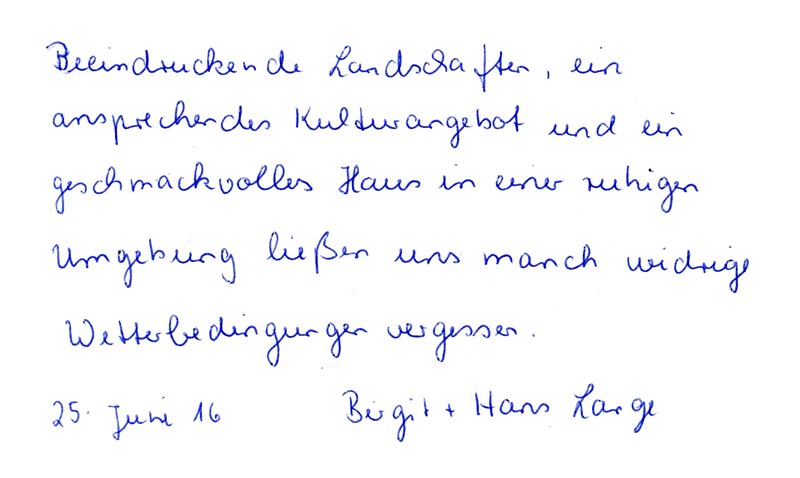 Beeindruckende Landschaften, ein
ansprechendes Kulturangebot und ein
geschmackvolles Haus in einer ruhigen
Umgebung ließen uns manch widrige
Wetterbedingungen vergessen.
25. Juni 16 Birgit + Hans Lange